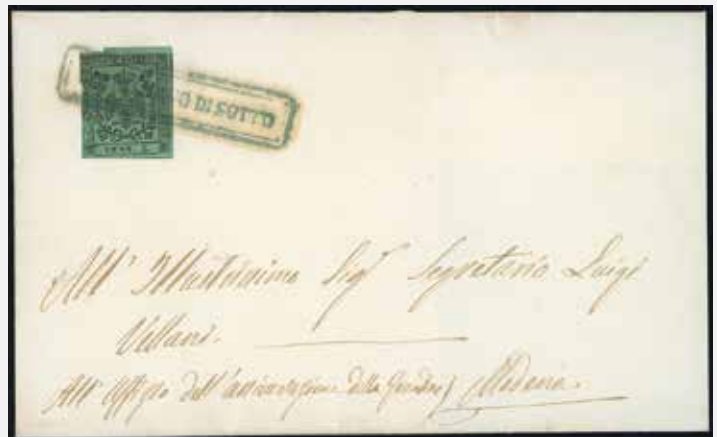 O DI SOTTO
All' Illustrissimo Sig.r Segretario Luigi
Villani.
All' Uffizio dell' associazione della Modena.